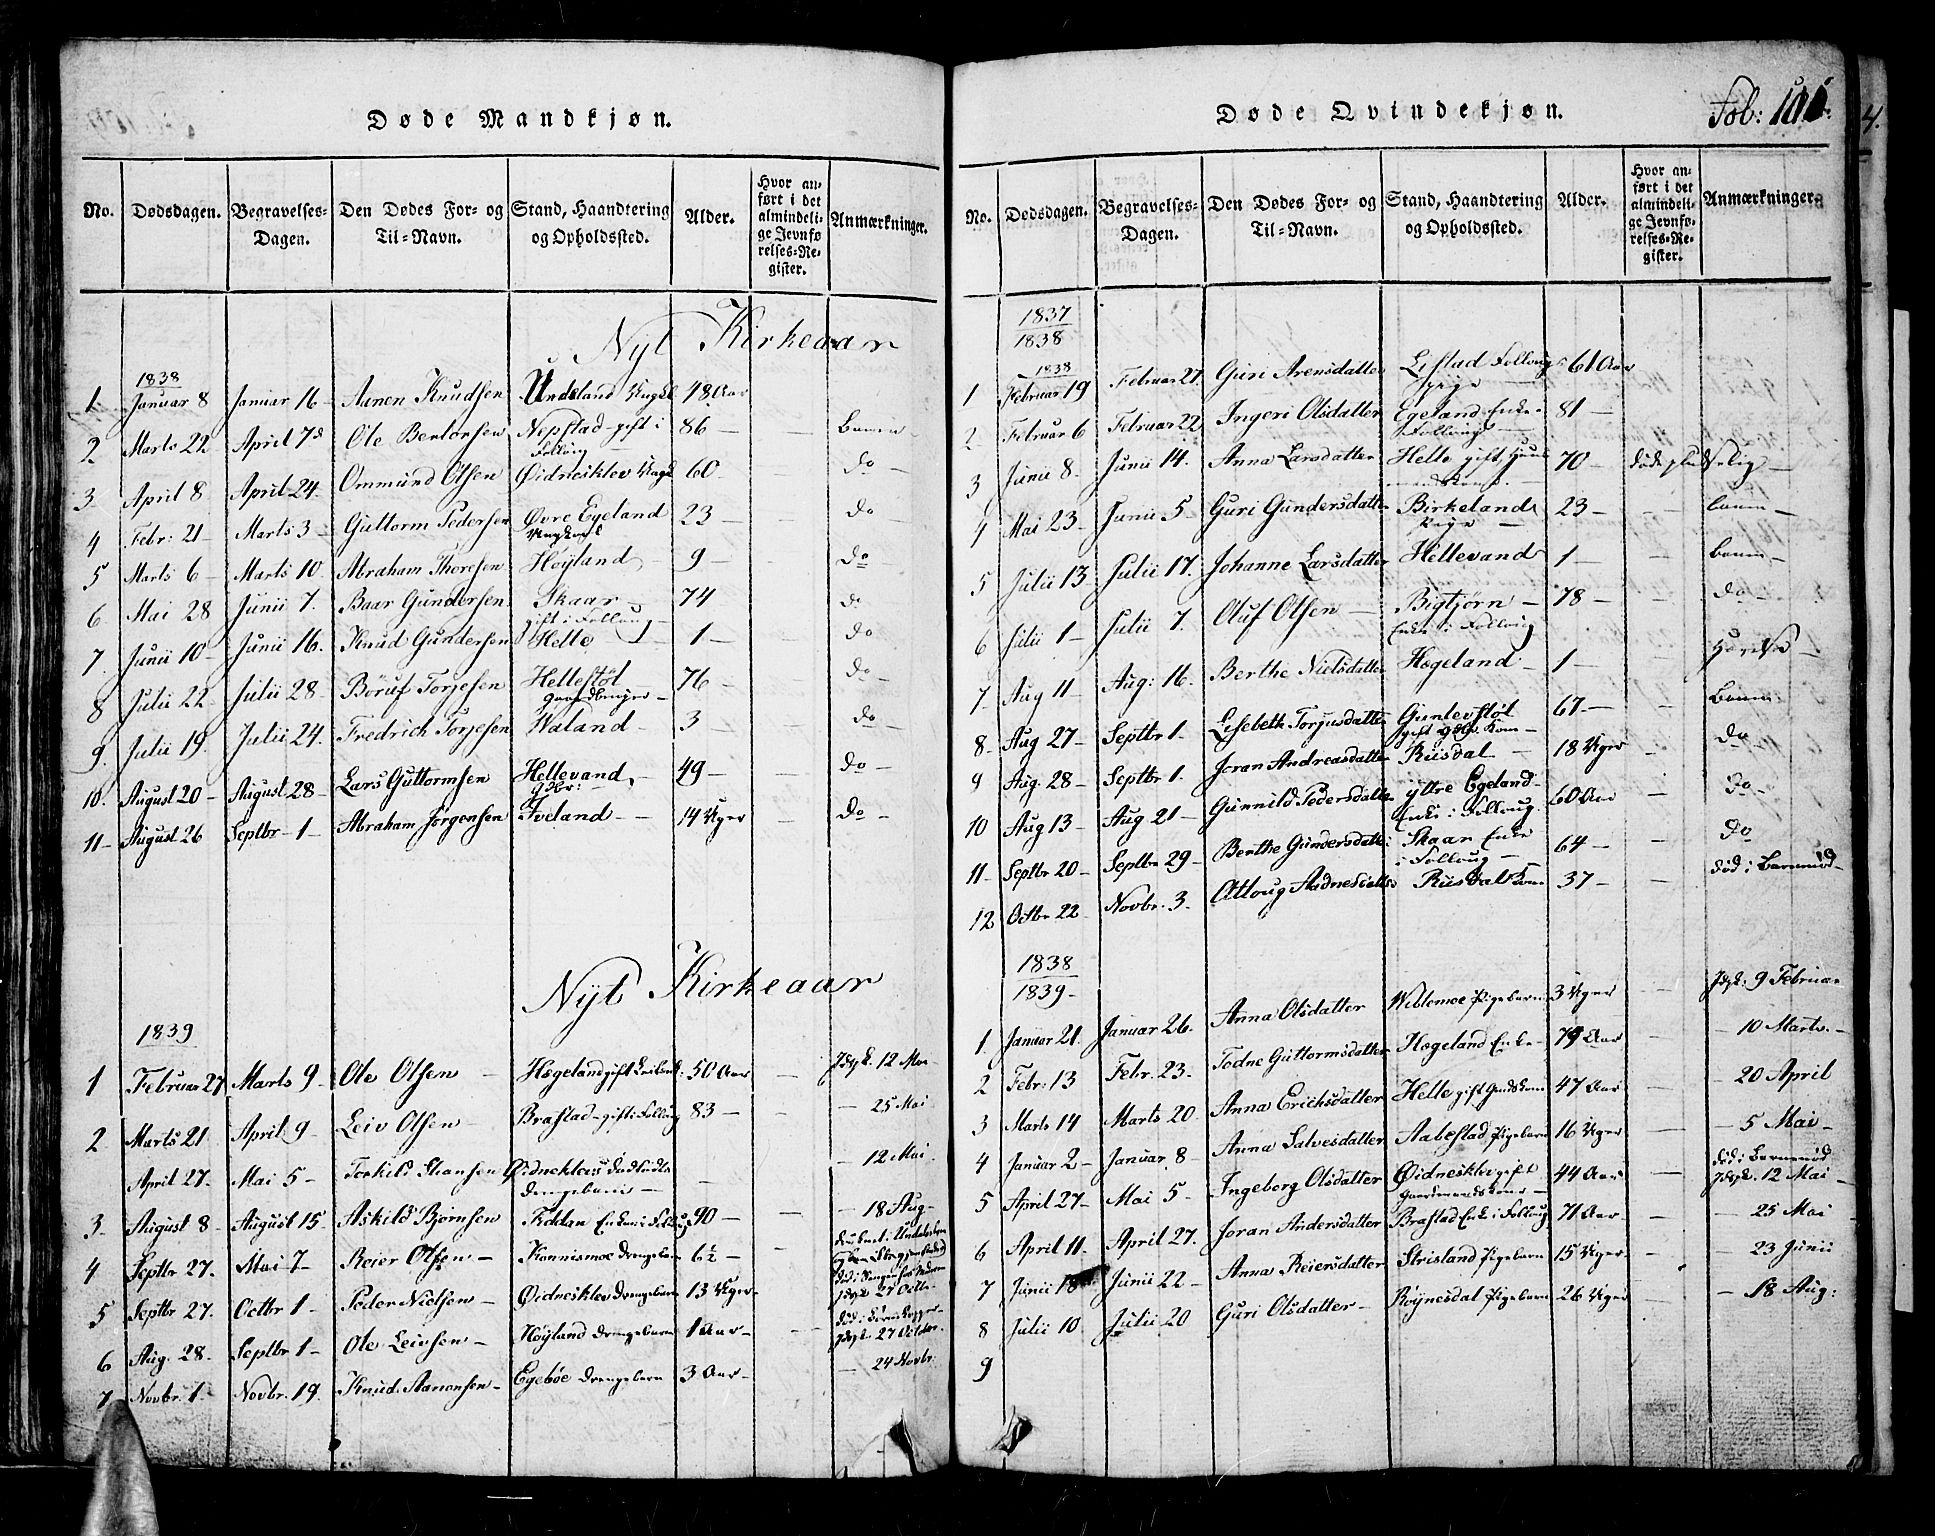 Døde Mandkjøn.
No. Dødsdagen. Begravelses-Dagen. Den Dødes For- og Til-Navn. Stand, Haandtering og Opholdssted. Alder. Hvor anført i det almindelige Jevnførelses-Register. Anmærkninger.
Nyt Kirkeaar
1838
1 Januar 8 Januar 16 Aanen Knudsen Undeland 48 Aar
2 Marts 22 April 7d Ole Berntorsen Nepstad gift i Folloug 86
3 April 8 April 24 Ommund Olsen Øidnesklev 60 do
4 Febr: 21 Marts 3 Guttorm Pedersen Øvre Egeland Ungkarl 23 do
5 Marts 6 Marts 10 Abraham Thoresen Høyland 9 do
6 Mai 28 Junii 7. Baar Gundersen Skaar gift i Folloug 74 do
7. Junii 10 Junii 16. Knud Gundersen Helle 1 do
8 Julii 22 Julii 28 Böruf Torjesen Hellestøl 76 do
9. Julii 19. Julii 24. Fredrich Torjesen Waland 3 do
10. August 20 August 28 Lars Guttormsen Hellevand 49 do
11 August 26 Septbr 1 Abraham Jörgensen Iveland 14 Uger do
Nyt Kirkeaar
1839
1 Februar 27 Marts 9 Ole Olsen Hægeland gift 50 Aar 12 Mai
2 Marts 21 April 9 Leiv Olsen Brastad gift i Follug 83 25 Mai
April 27. Mai 5 Torkild Øidneklev Drengebarn 12 Mai
3 August 8 August 15 Askild Bjørnsen Foddan Enkem i Follug 90 18 Aug
4 Septbr 27. Mai 7 Reier Olsen Konnismoe Drengebarn 6½
5 Septbr 27. Octbr 1 Peder Nielsen Øidnesklev Drengebarn 13 Uger 27 Octbr
6 Aug. 28. Septbr 1 Ole Leivsen Høyland Drengebarn 1 Aar 27 October
7 Novbr. 1. Novbr. 19. Knud Aanonsen Egebøe Drengebarn 3 Aar 24 Novbr:
Døde Qvindekjøn.
Fol:
4.
No. Dødsdagen. Begravelses-Dagen. Den Dødes For- og Til-Navn. Stand, Haandtering og Opholdssted. Alder. Hvor anført i det almindelige Jevnførelses-Register. Anmærkninger.
1837
1838
1838
1 Februar 19 Februar 27. Guri Arensdatter Listad Folloug Pige 61 Aar
2 Februar 6 Februar 22 Ingeri Olsdatter Egeland Enke Follug 81
3 Junii 8. Junii 14. Anna Larsdatter Helle gift 70 døde pludselig
4 Mai 23 Junii 5 Guri Gundersdatter Birkeland Pige 23
5 Julii 13 Julii 17. Johanne Larsdatter Hellevand 1
6 Julii 1 Julii 7. Oluf Olsen Bigtjørn Enke i Follug 78 do
7 Aug 11 Aug: 16. Berthe Nielsdatter Hægeland 1
8 Aug 27 Septbr 1. Lisebeth Torjusdatter Guntevstøl gift 67
9 Aug. 28 Septbr 1. Joran Andreasdatter Rüsdal 18 Uger do
10 Aug 13 Aug 21 Gunnild Pedersdatter ytre Egeland Enke i Follug 60 Aar do
11 Septbr 20 Septbr 29 Berthe Gundersdatter Skaar Enke i Follug 64 do
12 Octbr 22 Novbr. 3. Attoug Aadnesdatter Rüsdal 37 død i Barnenød
1838
1839
1. Januar 21. Januar 26. Anna Olsdatter Weblemoe Pigebarn 3 Uger 9 Februar
2 Febr: 13 Febr. 23. Todne Guttormsdatter Hægeland Enke 79 Aar 10 Marts
3 Marts 14 Marts 20 Anna Ericksdatter Helle gift 47 Aar 20 April
4 Januar 2 Januar 8 Anna Salvesdatter Aabestad Pigebarn 16 Uger 5 Mai
5 April 27 Mai 5 Ingeborg Olsdatter Øidnesklev gift Gaardmandskone 44 Aar død i Barnenød 12 Mai
6 April 11. April 27. Joran Andersdatter Brastad Enke i Follug 71 Aar 25 Mai
7 Junii 18 Junii 22 Anna Reiersdatter Strisland Pigebarn 15 Uger 23 Junii
8 Julii 10 Julii 20 Guri Olsdatter Røynesdal Pigebarn 26 Uger 18 Aug:
9